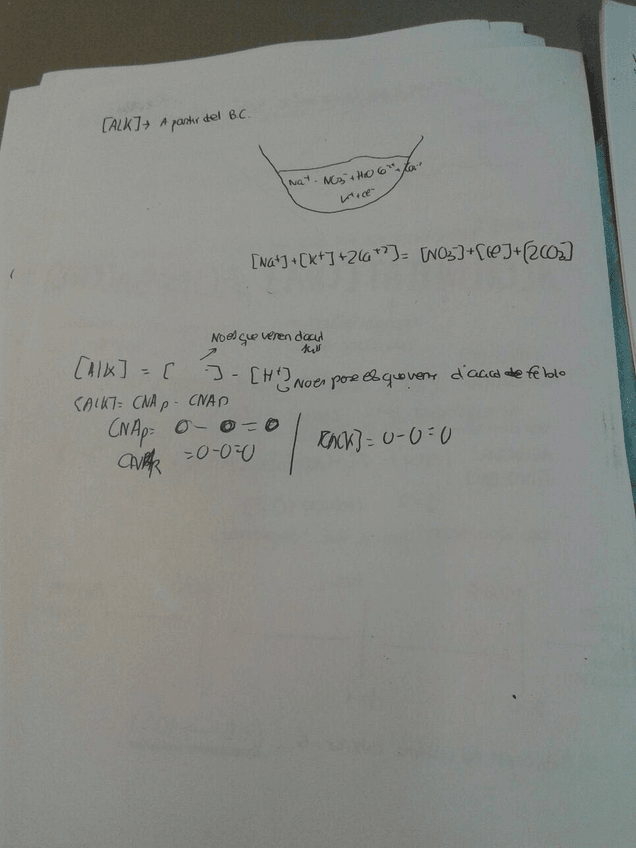 [ALK] → A partir del B.C.
Na⁺ - NO₃⁻ + H₂O
K⁺ + Cl⁻
[Na⁺] + [K⁺] + 2Ca⁺²] = [NO₃⁻] + [Cl⁻] + [2CO₃⁻]
No es que venen d'acid
[Alk] = [ -] - [H⁺] No es pose els que venr d'acid de feble
[ALK] = CNAp - CNAp
CNAp = 0 - 0 = 0
= 0 - 0 = 0
[ALK] = 0 - 0 = 0